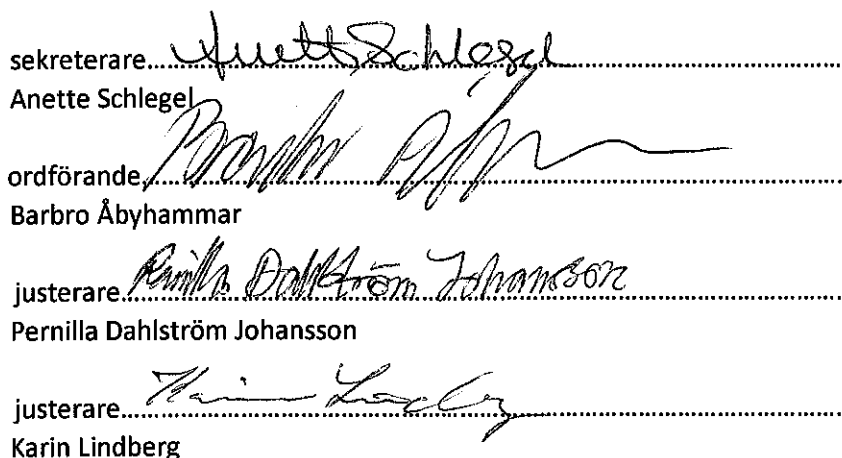 sekreterare.... Anett Schlegel
Anette Schlegel
ordförande....
Barbro Åbyhammar
justerare.... Pernilla Dahlström Johansson
Pernilla Dahlström Johansson
justerare.... Karin Lindberg
Karin Lindberg